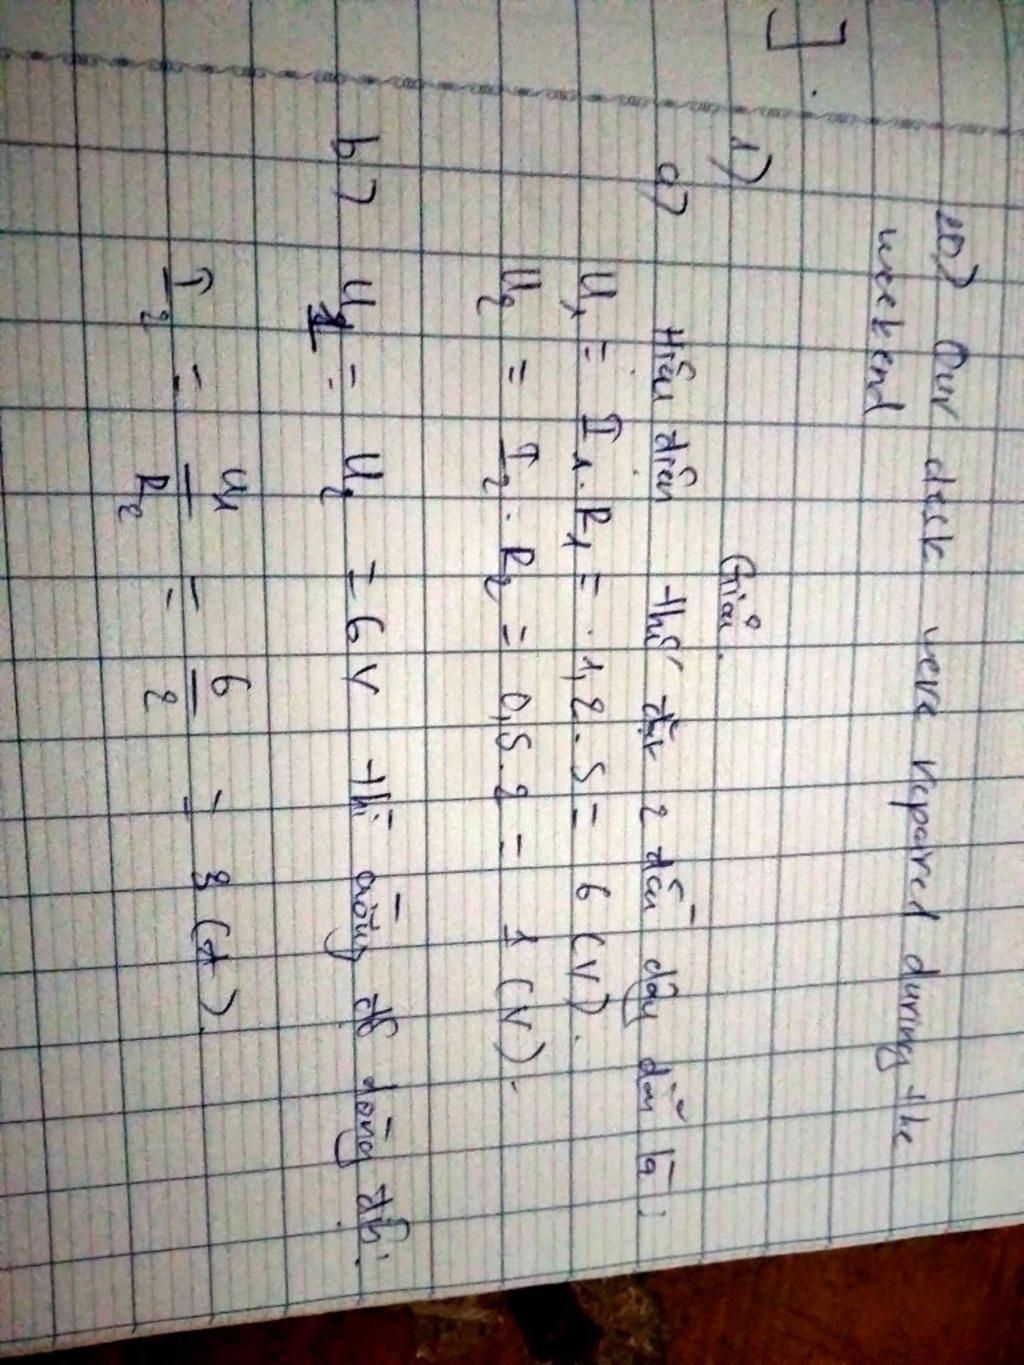 20) Our desk were repaired during the
weekend
Giải.
1)
a) Hiệu điện thế đặt 2 đầu dây dẫn là:
U₁ = I₁.R₁ = 1,2.5 = 6 (V).
U₂ = I₂.R₂ = 0,5.2 = 1 (V).
b) U₁ = U₂ = 6V thì cường độ dòng điện:
I₂ = U₁/R₂ = 6/2 = 3 (A).